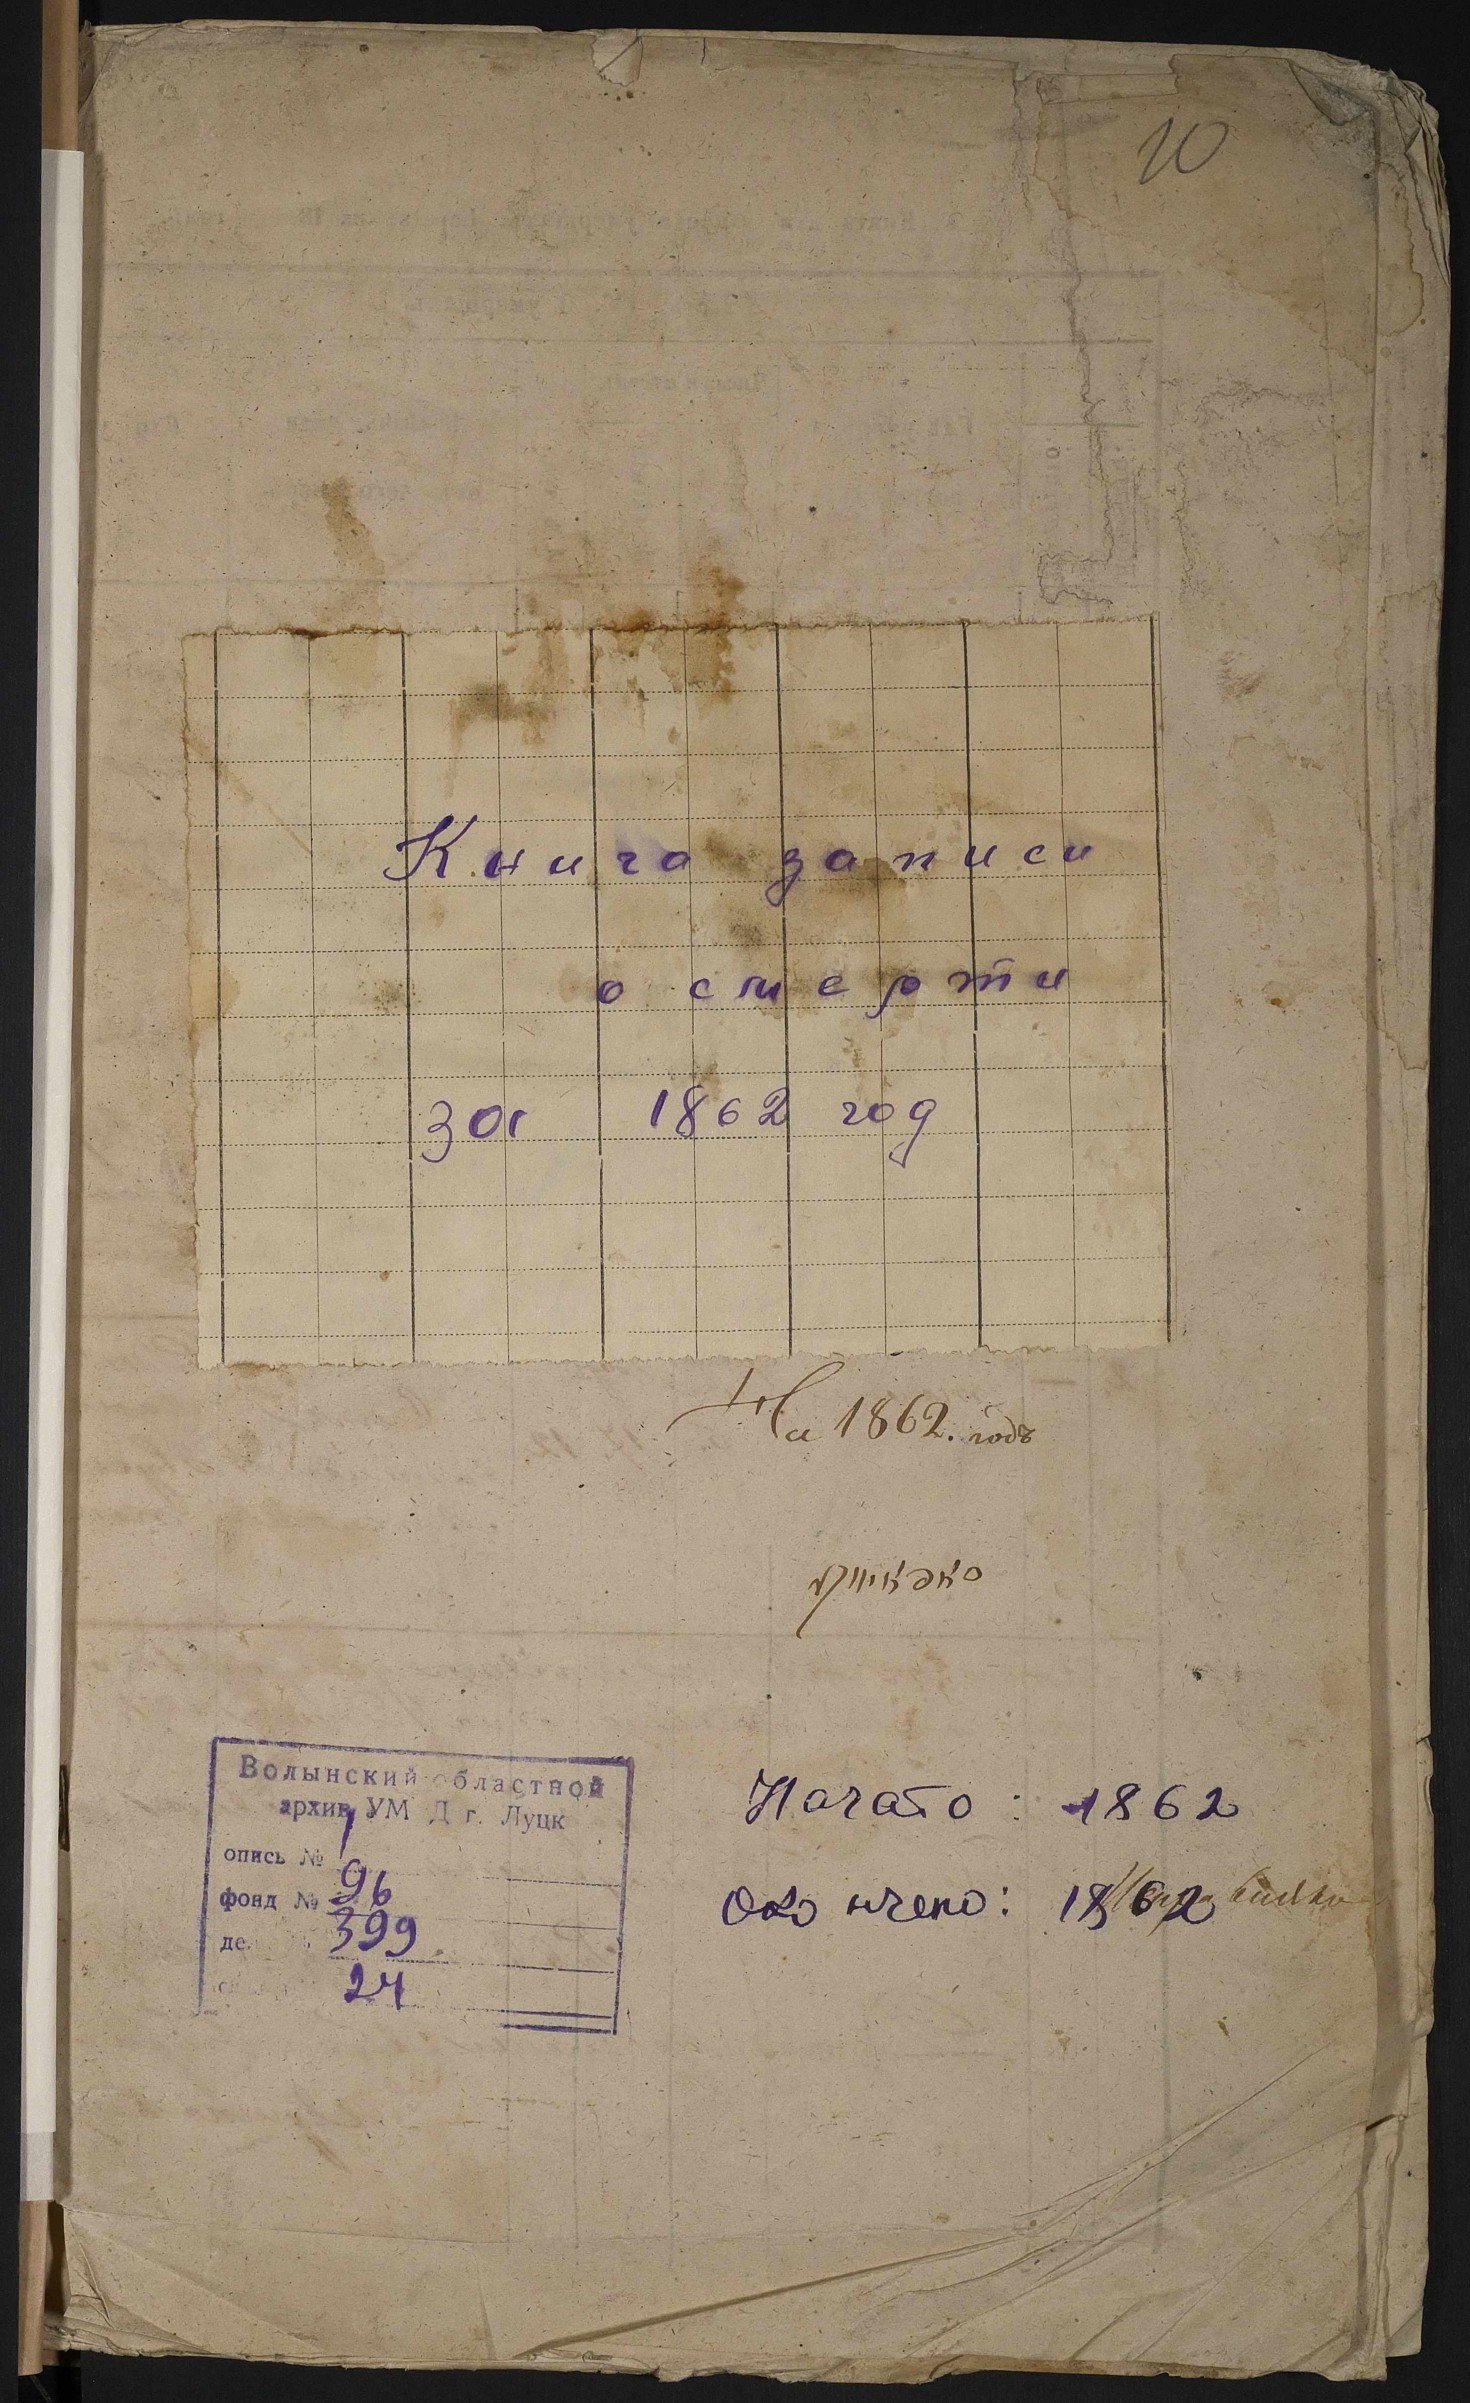 10
Книга записи
о смерти
за 1862 год
На 1862. годъ
Волынский областной
архив УМ Д г. Луцк
опись № 1
фонд № 96
де. 399
24
Начато: 1862
Окончено: 1862